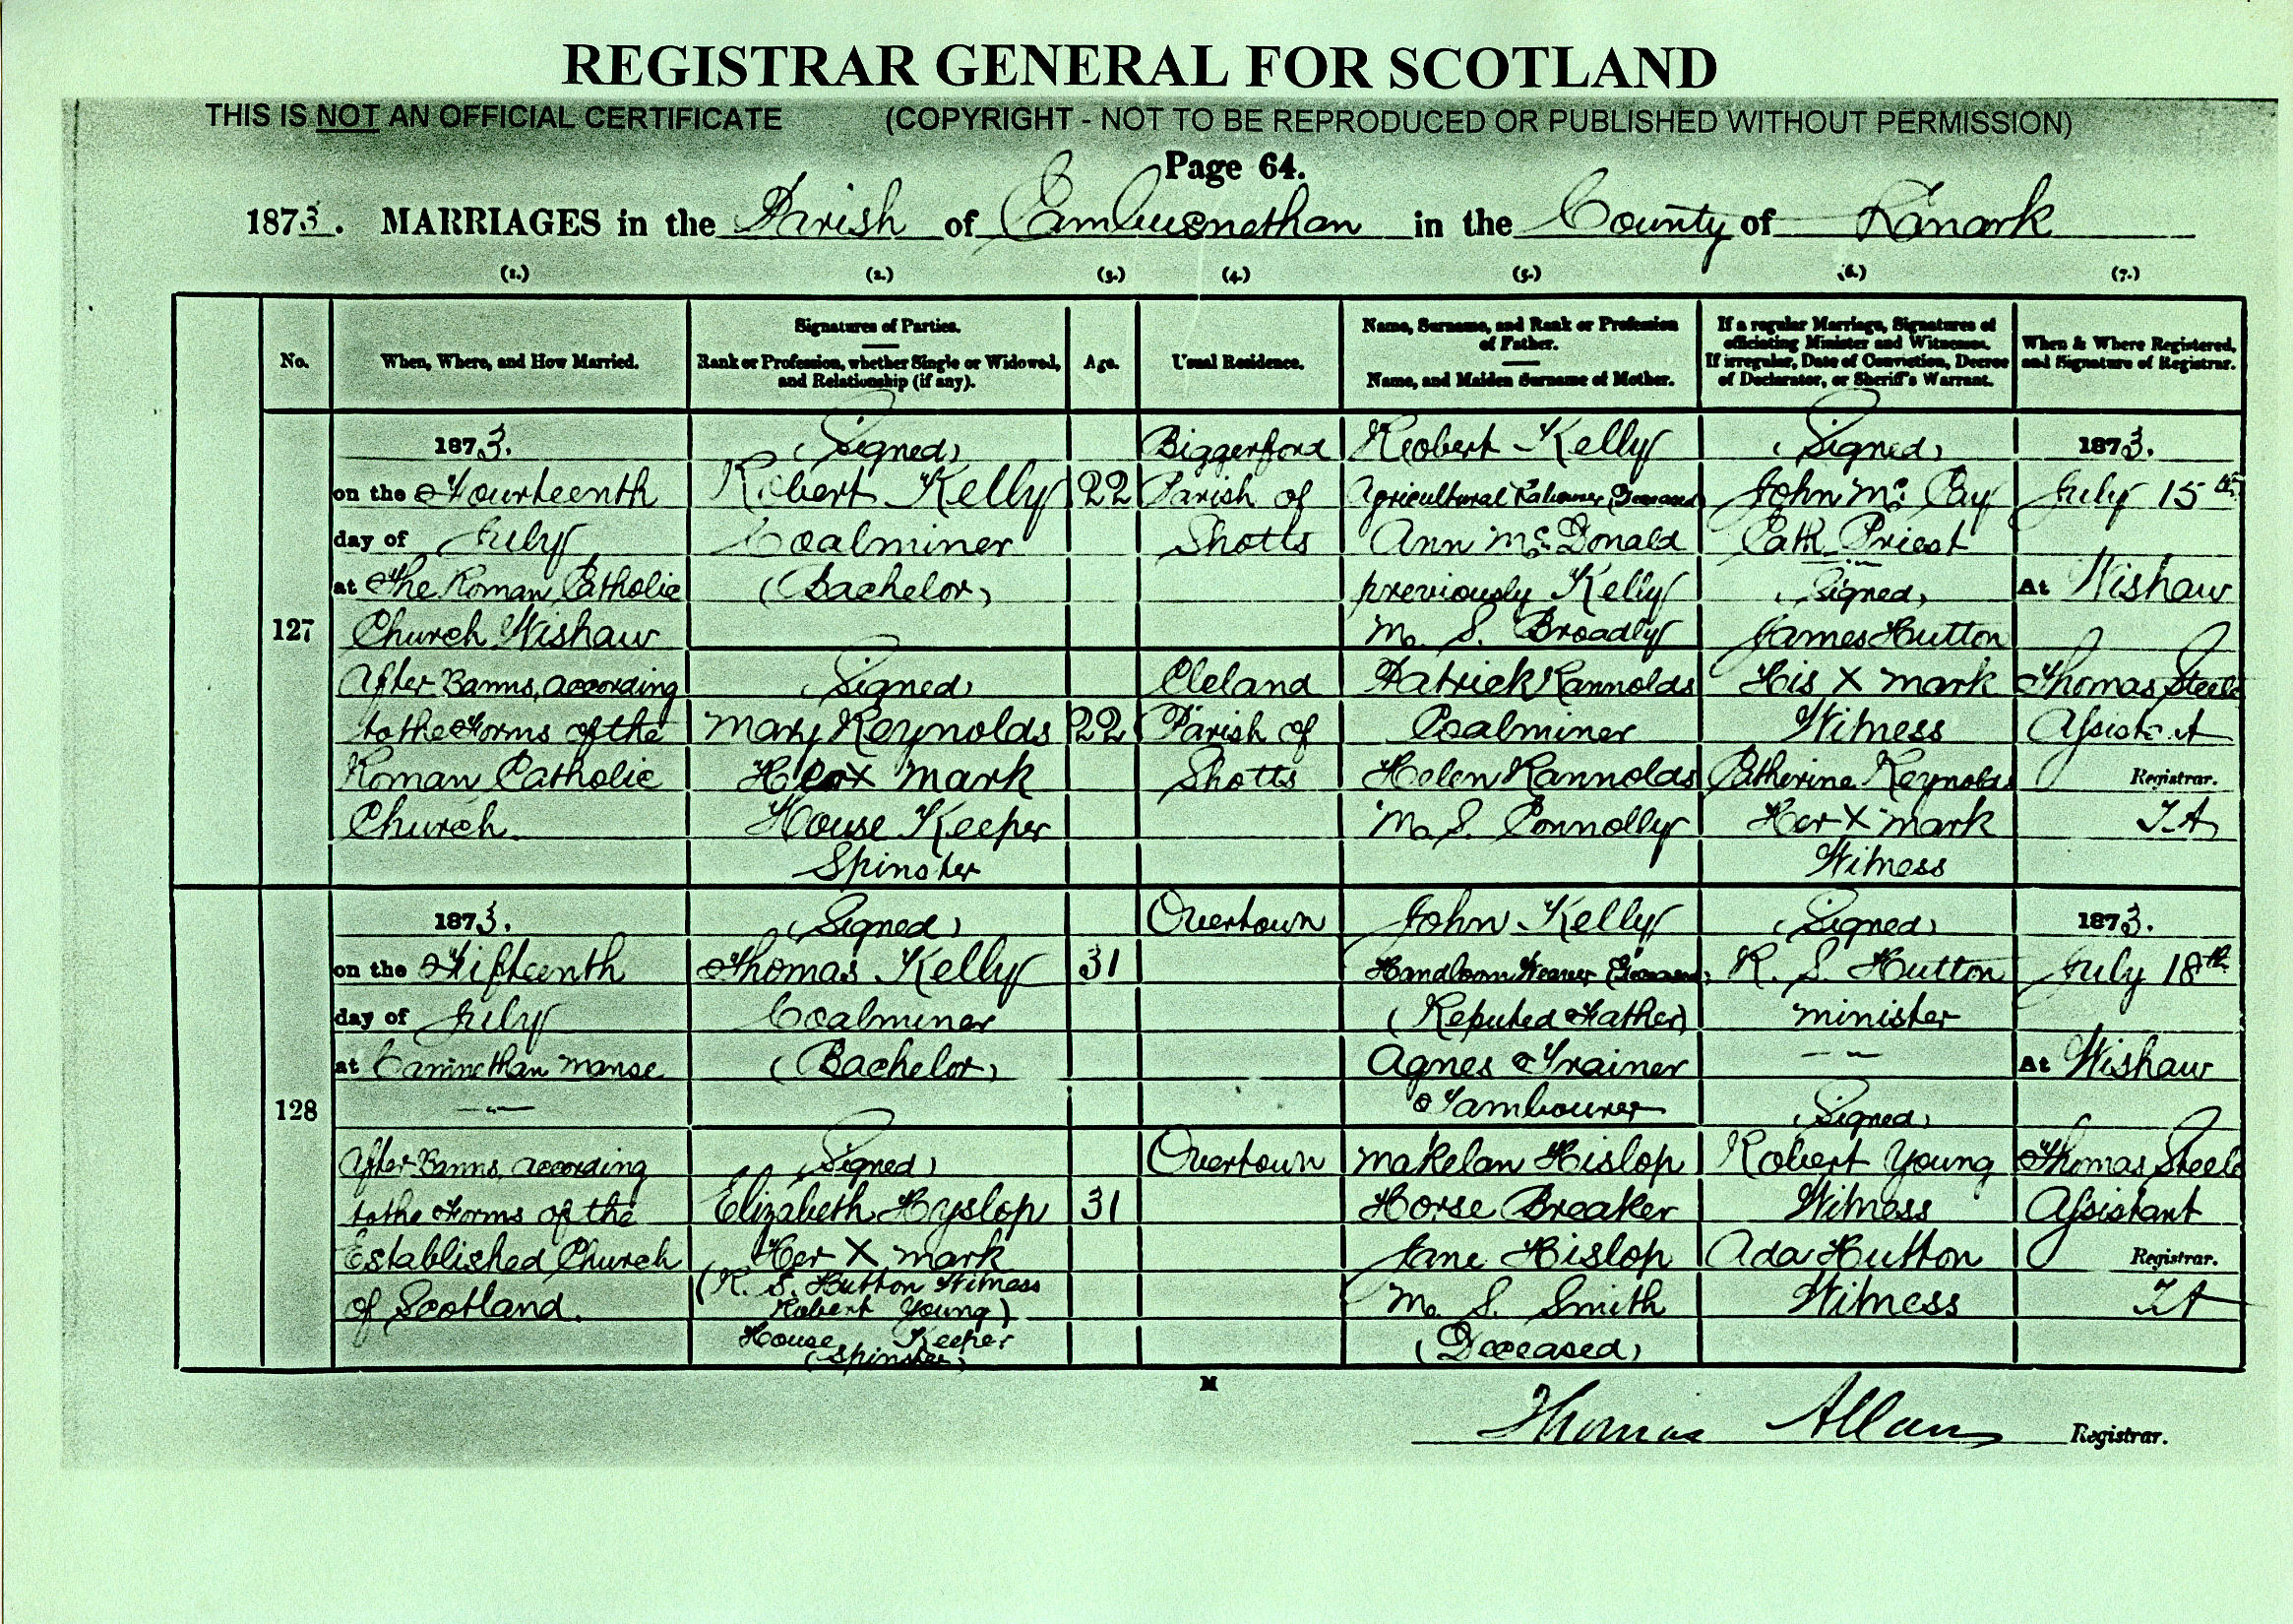 REGISTRAR GENERAL FOR SCOTLAND
THIS IS NOT AN OFFICIAL CERTIFICATE (COPYRIGHT - NOT TO BE REPRODUCED OR PUBLISHED WITHOUT PERMISSION)
Page 64.
1873. MARRIAGES in the Parish of Cambusnethan in the County of Lanark
(1.) (2.) (3.) (4.) (5.) (6.) (7.)
No.
When, Where, and How Married.
Signatures of Parties.
Rank or Profession, whether Single or Widowed,
and Relationship (if any).
Age.
Usual Residence.
Name, Surname, and Rank or Profession
of Father.
Name, and Maiden Surname of Mother.
If a regular Marriage, Signatures of
officiating Minister and Witnesses.
If irregular, Date of Conviction, Decree
of Declarator, or Sheriff's Warrant.
When & Where Registered,
and Signature of Registrar.
127
1873.
on the Fourteenth
day of July
at The Roman Catholic
Church Wishaw
After Banns, according
to the Forms of the
Roman Catholic
Church
(Signed)
Robert Kelly
Coalminer
(Bachelor)
(Signed)
Mary Reynolds
Her X mark
House Keeper
Spinster
22
22
Biggerford
Parish of
Shotts
Cleland
Parish of
Shotts
Robert Kelly
Agricultural Labourer (Deceased)
Ann McDonald
previously Kelly
M. S. Broadly
Patrick Rannolds
Coalminer
Helen Rannolds
M. S. Connolly
(Signed)
John Mc Cay
Cath. Priest
(Signed)
James Hutton
His X mark
Witness
Catherine Reynolds
Her X mark
Witness
1873.
July 15th
At Wishaw
Thomas Steele
Assistant
Registrar.
T.A
128
1873.
on the Fifteenth
day of July
at Camnethan Manse
After Banns, according
to the Forms of the
Established Church
of Scotland.
(Signed)
Thomas Kelly
Coalminer
(Bachelor)
(Signed)
Elizabeth Hyslop
Her X mark
(R. S. Hutton Witness
Robert Young)
House Keeper
(Spinster)
31
31
Overtown
Overtown
John Kelly
Handloom Weaver (Deceased)
(Reputed Father)
Agnes Trainer
Tambourer
Makelan Hislop
Horse Breaker
Jane Hislop
M. S. Smith
(Deceased)
(Signed)
R. S. Hutton
Minister
(Signed)
Robert Young
Witness
Ada Hutton
Witness
1873.
July 18th
At Wishaw
Thomas Steele
Assistant
Registrar.
T.A
M
Thomas Allan Registrar.